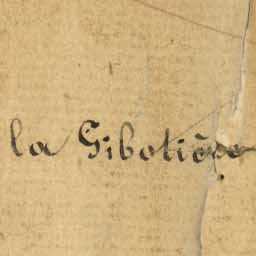 la Gibotière